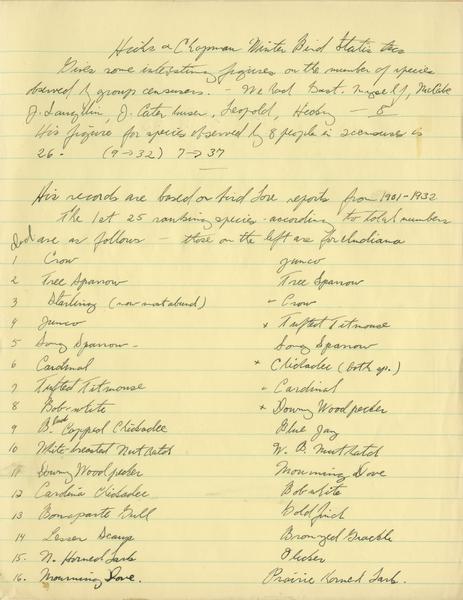 Hicks & Chapman Winter Bird Statistics
Gives some interesting figures on the number of species
observed by groups censusers. — We had Bart. myself, McCabe
J. Laughlin, J. Catenhusen, Leopold, 8
His figure for species observed by 8 people in censuses is
26. (9→32) 7→37
His records are based on Bird Lore reports from 1901-1932
The 1st 25 ranking species according to total numbers
are as follows — those on the left are for Indiana
1 Crow Junco
2 Tree Sparrow Tree Sparrow
3 Starling (now most abund) - Crow
4 Junco x Tufted Titmouse
5 Song Sparrow - Song Sparrow
6 Cardinal x Chickadee (both sp.)
7 Tufted Titmouse - Cardinal
8 Bobwhite x Downy Woodpecker
9 Blk Capped Chickadee Blue Jay
10 White-breasted Nuthatch W. B. Nuthatch
11 Downy Woodpecker Mourning Dove
12 Carolina Chickadee Bobwhite
13 Bonaparte Gull Goldfinch
14 Lesser Scaup Bronzed Grackle
15. N. Horned Lark Flicker
16. Mourning Dove. Prairie Horned Lark.